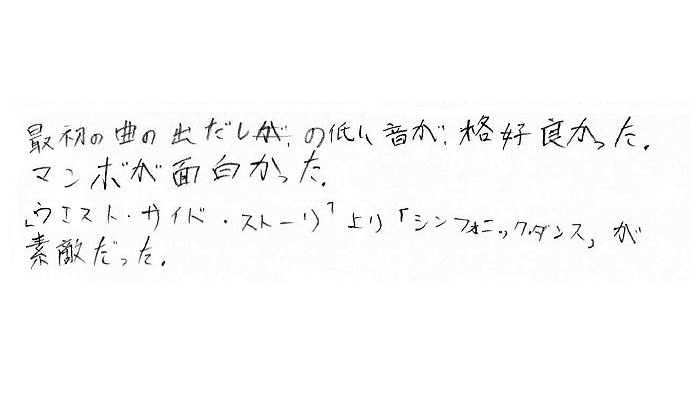 最初の曲の出だしの低い音が、格好良かった。
マンボが面白かった。
「ウエスト・サイド・ストーリ」より「シンフォニック・ダンス」が
素敵だった。